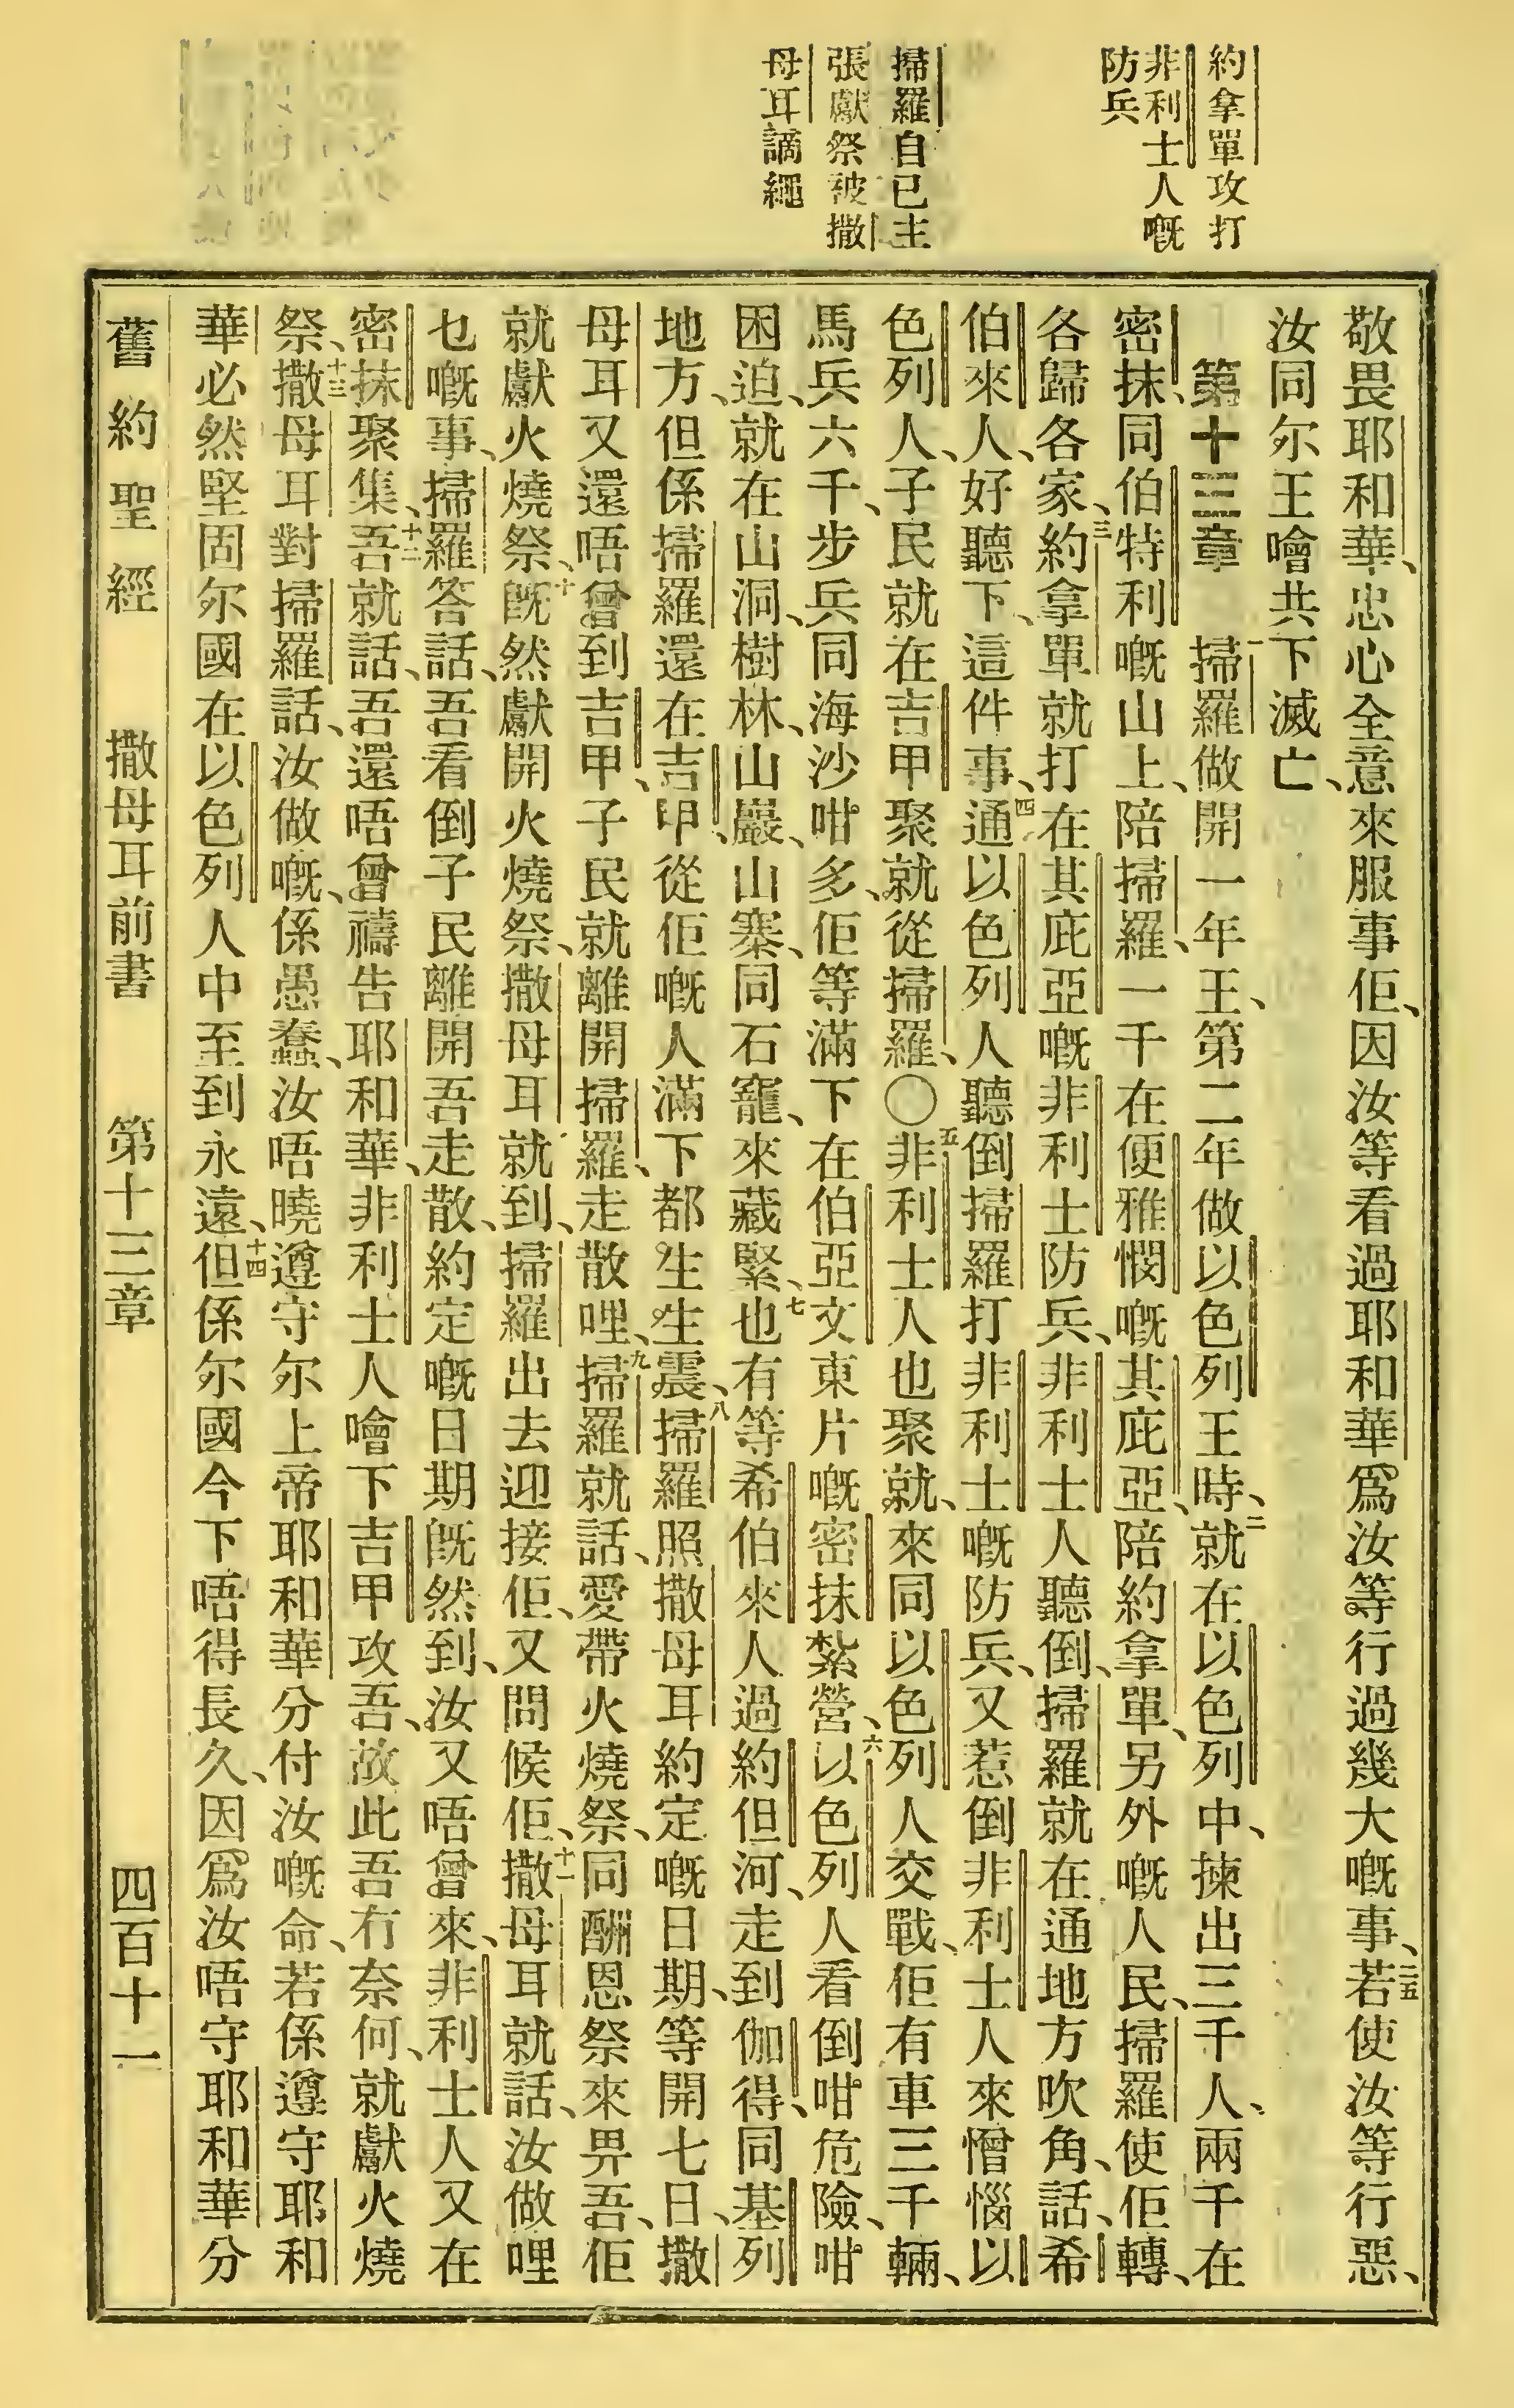 約拿單攻打
非利士人嘅
防兵
掃羅自已主
張獻祭被撒
母耳謫繩
敬畏耶和華、忠心全意來服事佢、因汝等看過耶和華爲汝等行過幾大嘅事、二五若使汝等行惡、
汝同尔王噲共下滅亡、
第十三章 一掃羅做開一年王、第二年做以色列王時、二就在以色列中、揀出三千人、兩千在
密抹、同伯特利嘅山上、陪掃羅、一千在便雅憫嘅其庇亞、陪約拿單、另外嘅人民、掃羅使佢轉、
各歸各家、三約拿單就打在其庇亞嘅非利士防兵、非利士人聽倒、掃羅就在通地方吹角、話、希
伯來人、好聽下、這件事、四通以色列人聽倒掃羅打非利士嘅防兵、又惹倒非利士人來憎惱以
色列人、子民就在吉甲聚就從掃羅、〇五非利士人也聚就、來同以色列人交戰、佢有車三千輛、
馬兵六千、步兵同海沙咁多、佢等滿下在伯亞文東片嘅密抹紮營、六以色列人看倒咁危險、咁
困迫、就在山洞、樹林、山巖、山寨、同石竉、來藏緊、七也有等希伯來人過約但河、走到伽得、同基列
地方、但係掃羅還在吉甲、從佢嘅人滿下都生生震、八掃羅照撒母耳約定嘅日期、等開七日、撒
母耳又還唔曾到吉甲、子民就離開掃羅、走散哩、九掃羅就話、愛帶火燒祭、同酬恩祭來畀吾、佢
就獻火燒祭、十旣然獻開火燒祭、撒母耳就到、掃羅出去迎接佢、又問候佢、十一撒母耳就話、汝做哩
乜嘅事、掃羅答話、吾看倒子民離開吾走散、約定嘅日期旣然到、汝又唔曾來、非利士人又在
密抹聚集、十二吾就話、吾還唔曾禱告耶和華、非利士人噲下吉甲攻吾、故此吾冇奈何、就獻火燒
祭、十三撒母耳對掃羅話、汝做嘅、係愚蠢、汝唔曉遵守尔上帝耶和華分付汝嘅命、若係遵守耶和
華必然堅固尔國在以色列人中至到永遠、十四但係尔國今下唔得長久、因爲汝唔守耶和華分
舊約聖經 撒母耳前書 第十三章 四百十一